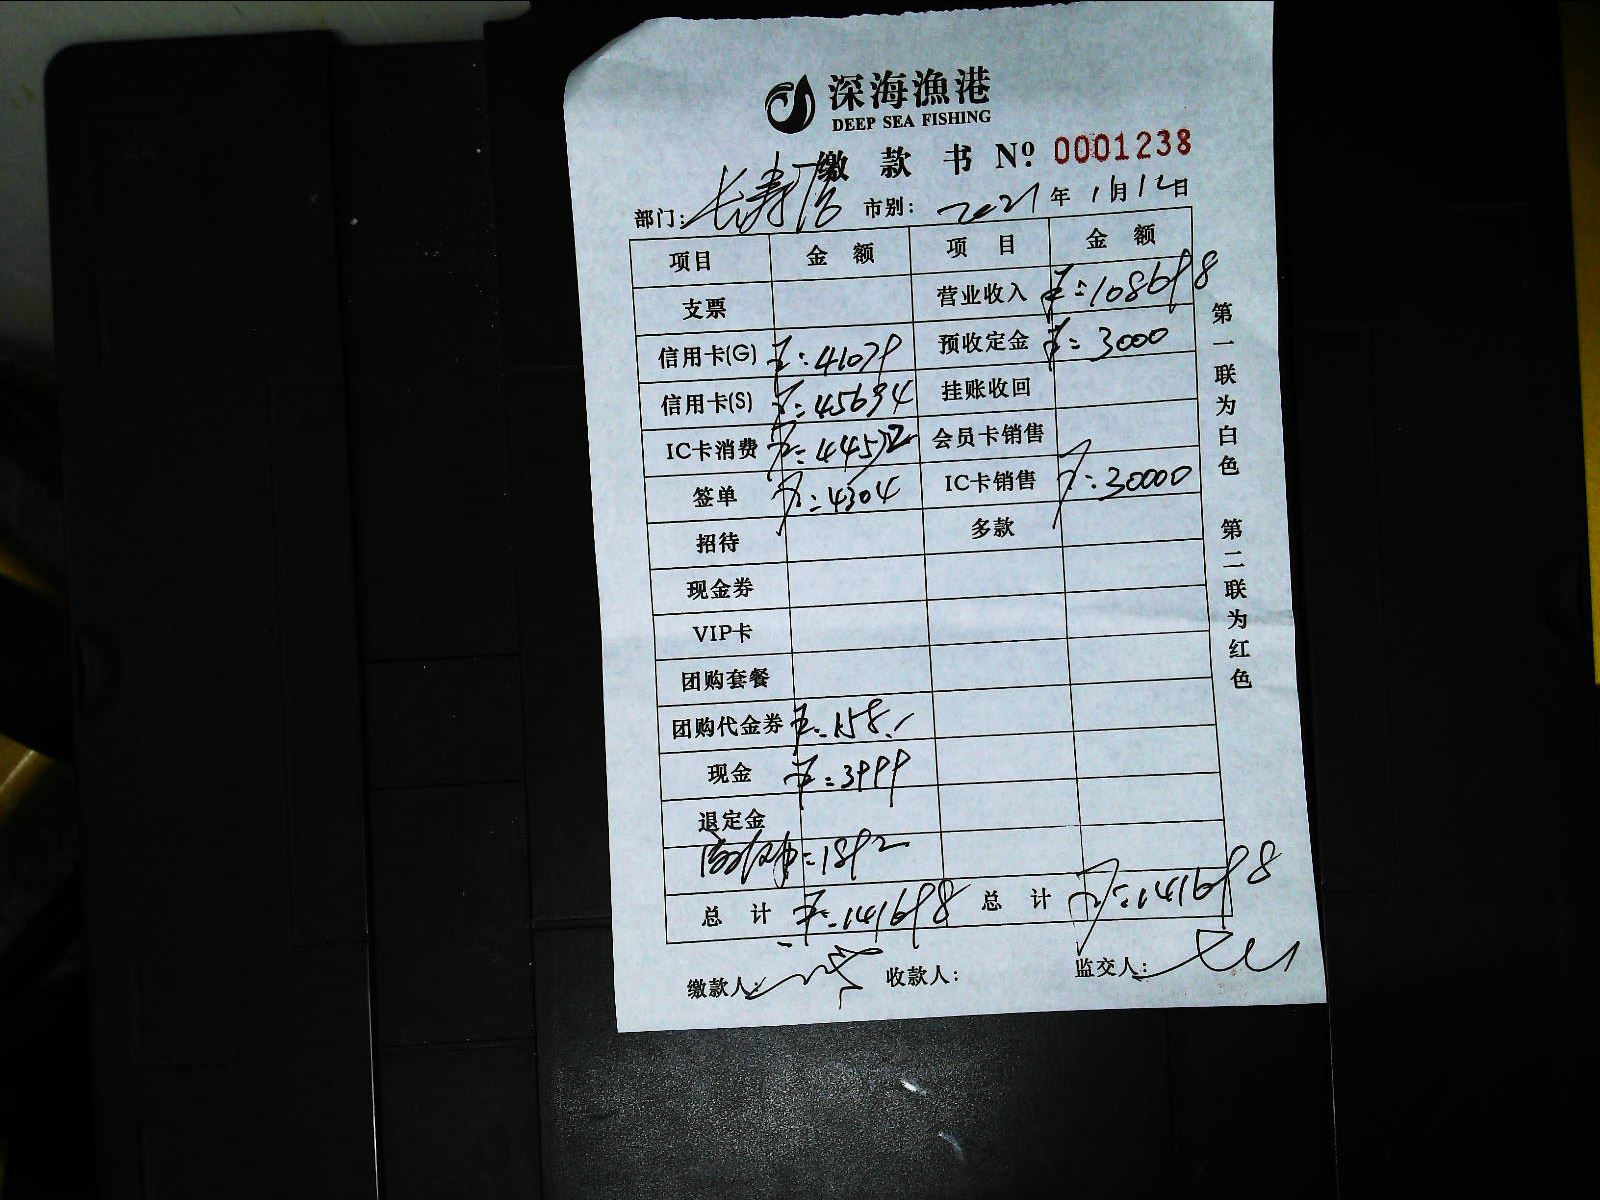 深海漁港
DEEP SEA FISHING
缴款书 Nº 0001238
部门: 长寿店 市别: 2021年11月12日
项目 金额 项目 金额
支票 营业收入 ¥:108698
信用卡(G) ¥:41079 预收定金 ¥:3000
信用卡(S) ¥:45694 挂账收回
IC卡消费 ¥:44572 会员卡销售
签单 ¥:4304 IC卡销售 ¥:30000
招待 多款
现金券
VIP卡
团购套餐
团购代金券 ¥:158.
现金 ¥:3999
退定金
=1892
总计 ¥:141698 总计 ¥:141698
缴款人: 收款人: 监交人:
第一联为白色 第二联为红色